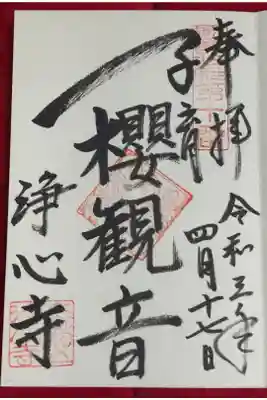 奉拝
令和三年
四月十七日
子育
櫻観音
浄心寺